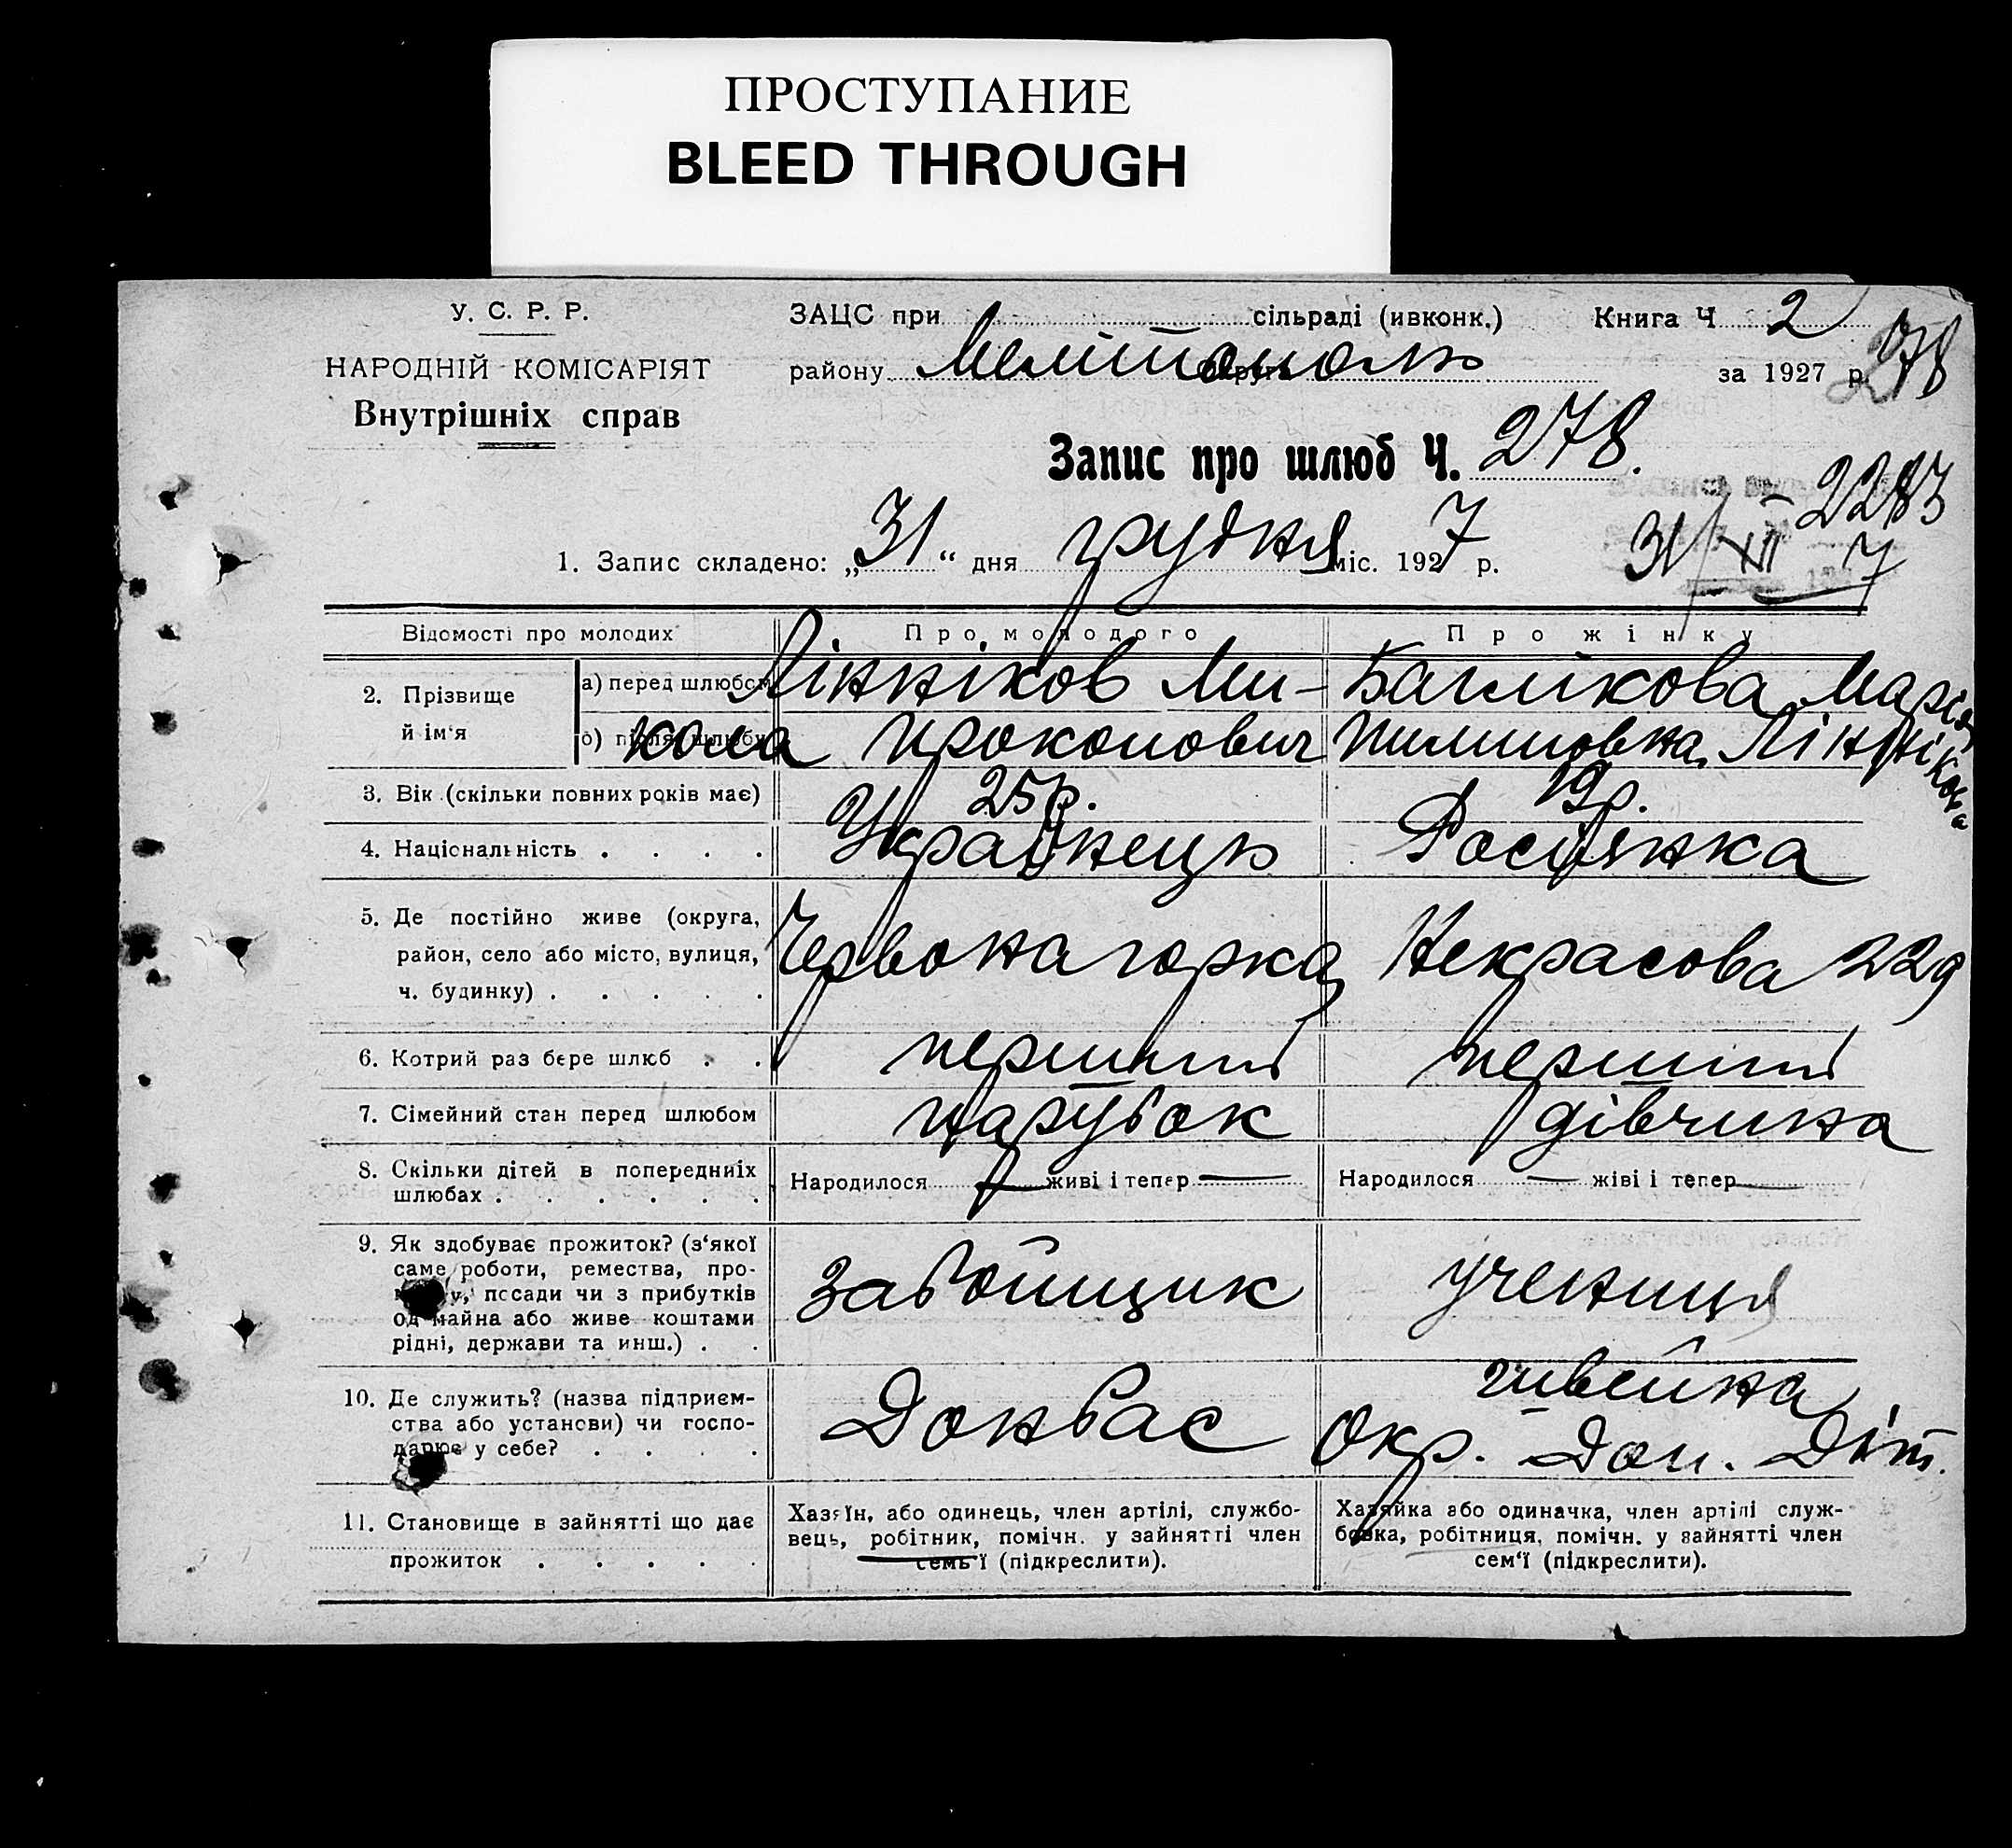 ПРОСТУПАНИЕ
BLEED THROUGH
У. С. Р. Р.
НАРОДНІЙ КОМІСАРІЯТ
Внутрішніх справ
ЗАЦС при сільраді (ивконк.) Книга Ч 2
району Мелітополь округи за 1927 р. 278
Запис про шлюб Ч. 278.
2283
1. Запис складено: „31“ дня грудня міс. 1927 р.
31/XII 7
Відомості про молодих
Про молодого
Про жінку
2. Прізвище й ім‘я
а) перед шлюбом
б) після шлюбу
Лінніков Ми-
кола Прокопович
Марія
Пилиповна Ліннікова
3. Вік (скільки повних років має)
25р.
19р.
4. Національність . . . .
Українець
Росіянка
5. Де постійно живе (округа,
район, село або місто, вулиця,
ч. будинку) . . . . .
Червона горка
Некрасова 229
6. Котрий раз бере шлюб . .
перший
перший
7. Сімейний стан перед шлюбом
парубок
дівчина
8. Скільки дітей в попередниіх
шлюбах . . . . . .
Народилося — живі і тепер —
Народилося — жіві і тепер —
9. Як здобуває прожиток? (з‘якої
саме роботи, ремества, про-
у, посади чи з прибутків
од майна або живе коштами
рідні, держави та инш.) . .
забойщик
учениця
швейна
10. Де служить? (назва підприєм-
ства або установи) чи госпо-
дарює у себе? . . . .
Донбас
Окр. Доп. Діт.
11. Становище в зайнятті що дає
прожиток . . . . .
Хазяїн, або одинець, член артілі, службо-
вець, робітник, помічн. у зайнятті член
семь‘ї (підкреслити).
Хазяйка або одиначка, член артілі служ-
бовка, робітниця, помічн. у зайнятті член
сем‘ї (підкреслити).